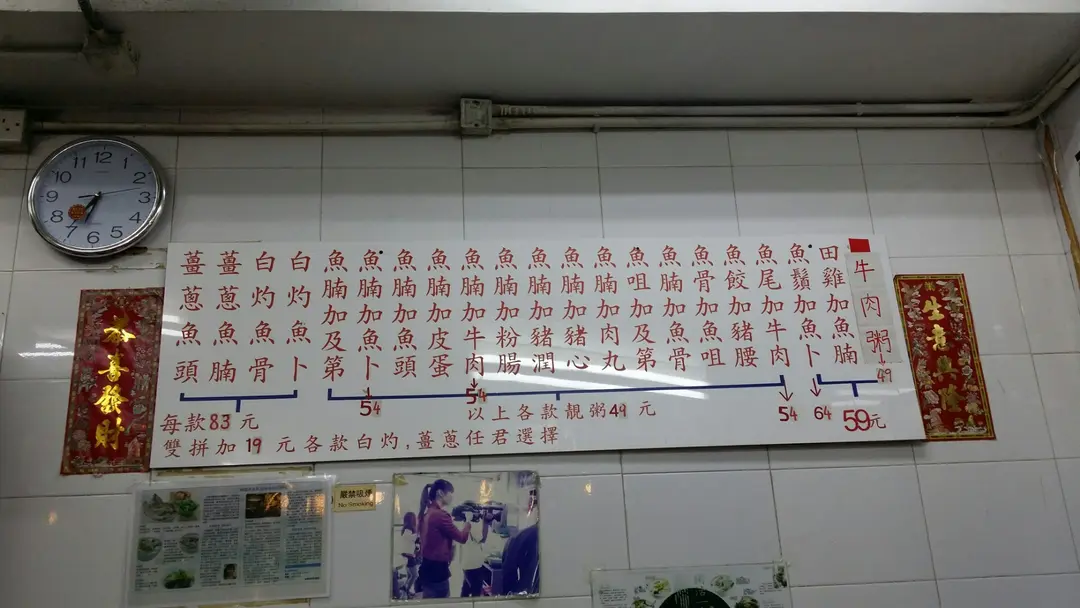 恭喜發財
薑蔥魚頭
薑蔥魚腩
白灼魚骨
白灼魚卜
魚腩加及第
魚腩加魚卜
魚腩加魚頭
魚腩加皮蛋
魚腩加牛肉
魚腩加粉腸
魚腩加豬潤
魚腩加豬心
魚腩加肉丸
魚咀加及第
魚腩加魚骨
魚骨加魚咀
魚餃加豬腰
魚尾加牛肉
魚鬚加魚卜
田雞加魚腩
牛肉粥
49
54
54
54
64
59元
每款83元
以上各款靚粥49元
雙拼加19元各款白灼,薑蔥任君選擇
生意興隆
嚴禁吸煙
No Smoking
12
1
2
3
4
5
6
7
8
9
10
11